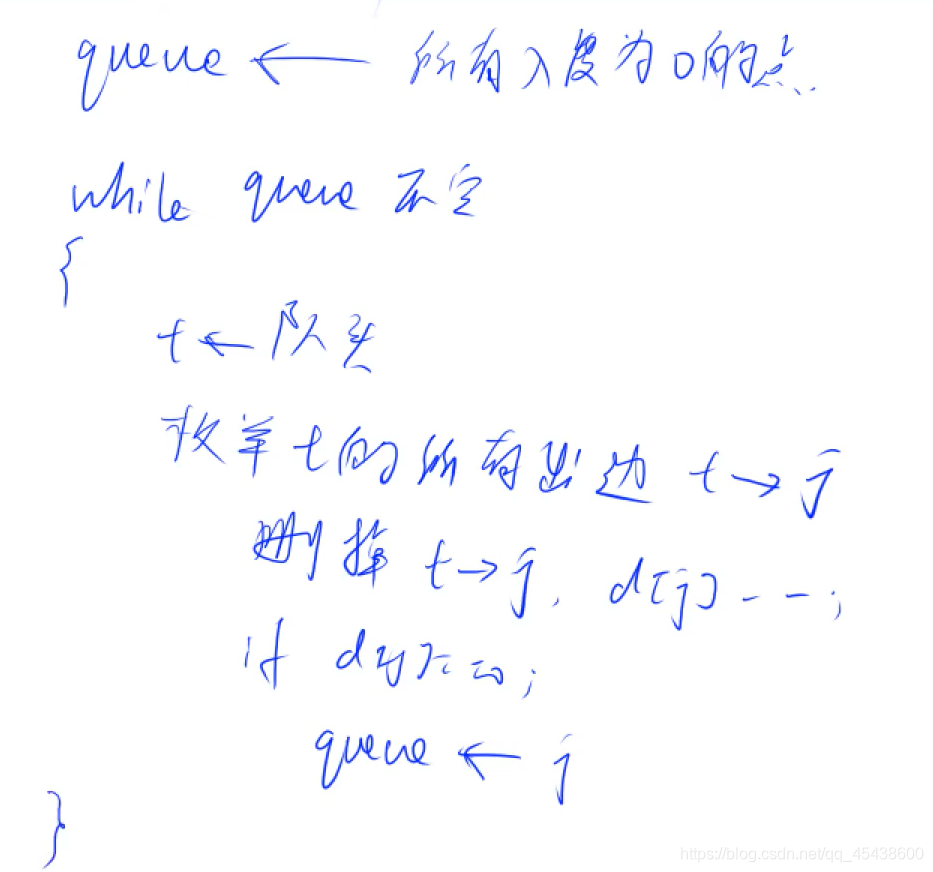 queue ← 所有入度为0的点.
while queue 不空
{
t ← 队头
枚举 t的所有出边 t→j
删掉 t→j, d[j]--;
if d[j]==0;
queue ← j
}
https://blog.csdn.net/qq_45438600